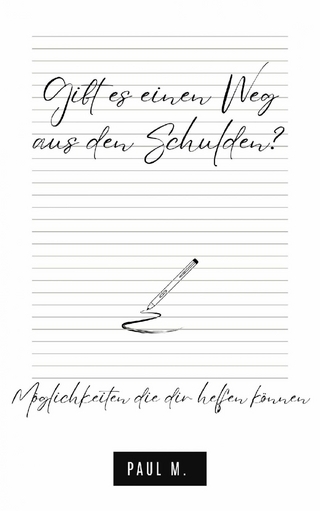 Gibt es einen Weg
aus den Schulden?
Möglichkeiten die dir helfen können
PAUL M.